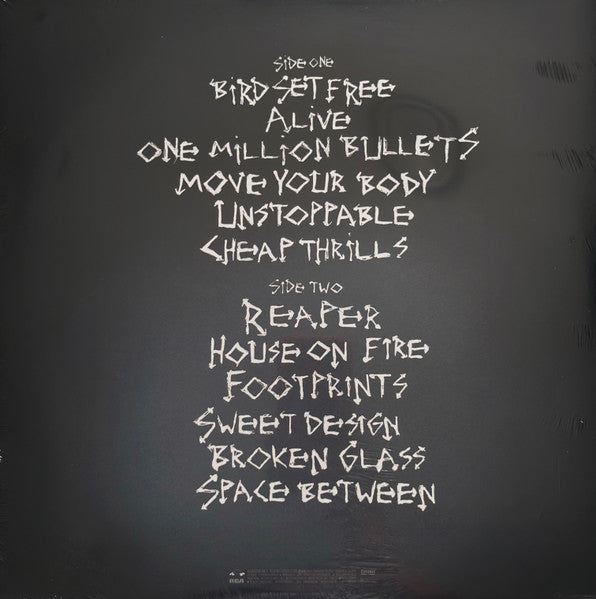 SIDE ONE
BIRD SET FREE
ALIVE
ONE MILLION BULLETS
MOVE YOUR BODY
UNSTOPPABLE
CHEAP THRILLS
SIDE TWO
REAPER
HOUSE ON FIRE
FOOTPRINTS
SWEET DESIGN
BROKEN GLASS
SPACE BETWEEN
RCA